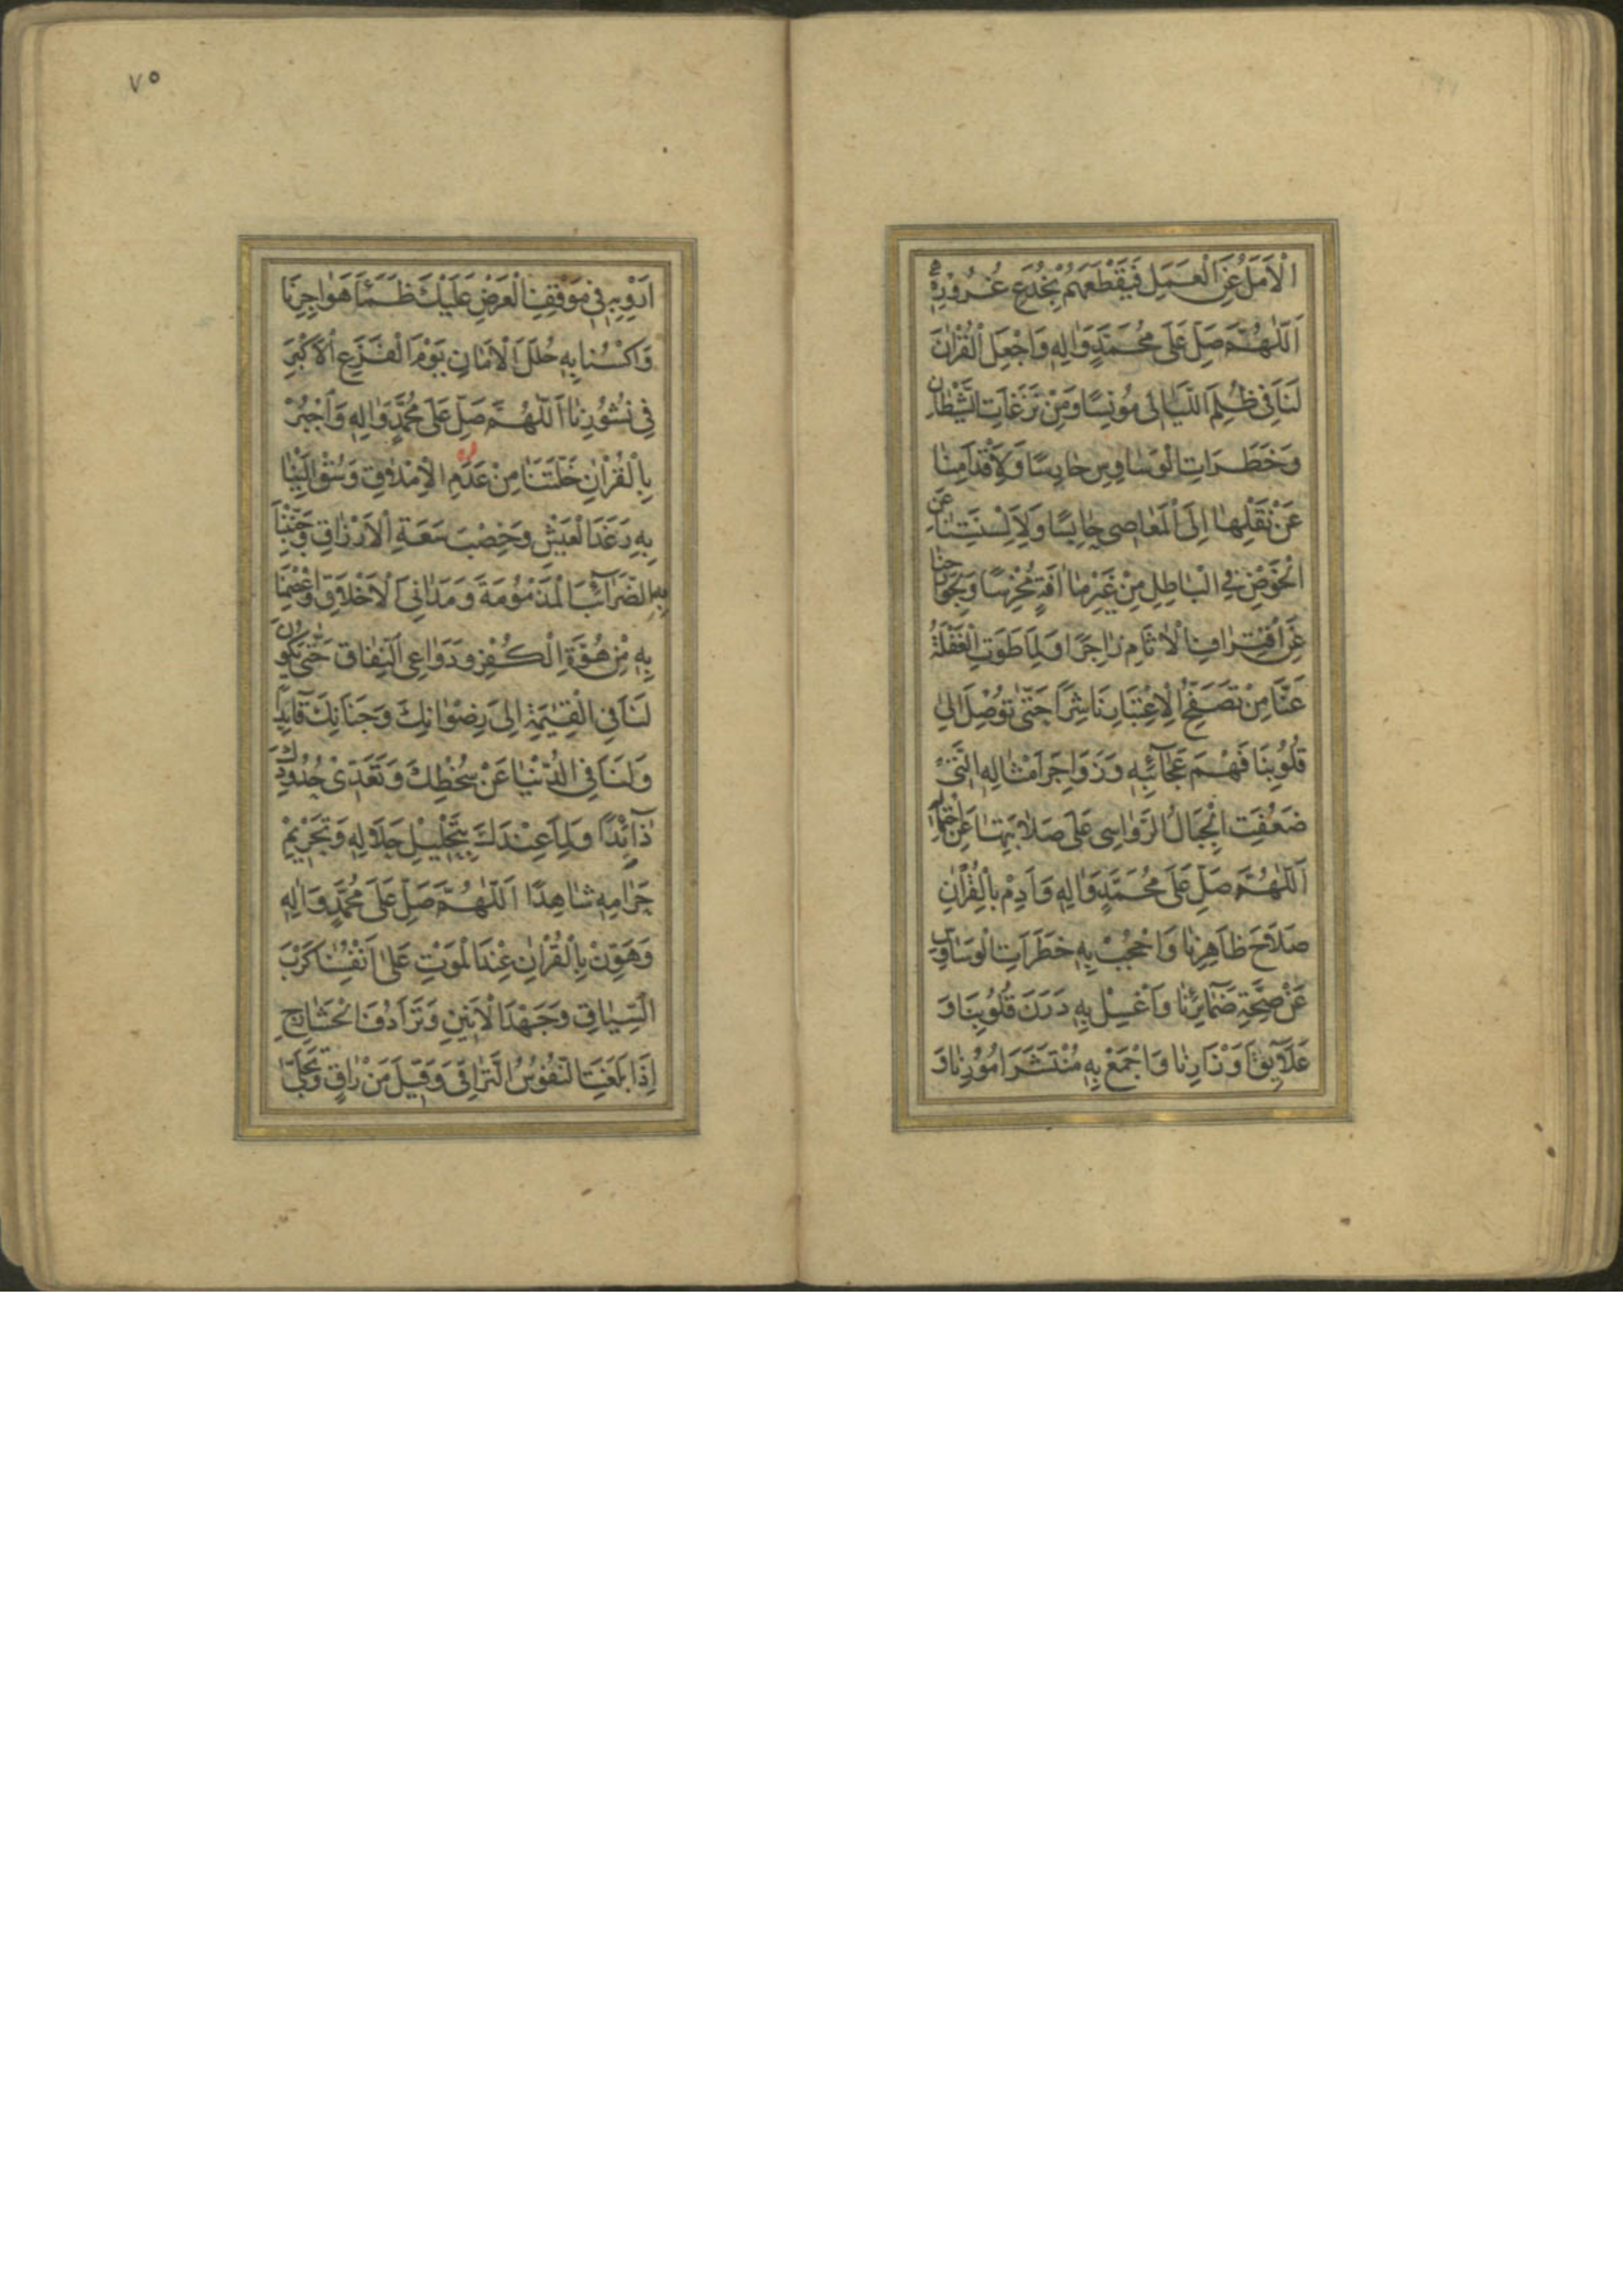 الْاَمَلُ عَنِ الْعَمَلِ فَيَقْطَعَهُمْ بِخُدَعِ غُرُورِهِ
اَللّٰهُمَّ صَلِّ عَلٰى مُحَمَّدٍ وَاٰلِهِ وَاجْعَلِ الْقُرْاٰنَ
لَنَا فِي ظُلَمِ اللَّيَالِي مُونِسًا وَمِنْ نَزَغَاتِ الشَّيْطَانِ
وَخَطَرَاتِ الْوَسَاوِسِ حَارِسًا وَلِاَقْدَامِنَا
عَنْ نَقْلِهَا اِلَى الْمَعَاصِي حَابِسًا وَلِاَلْسِنَتِنَا عَنِ
الْخَوْضِ فِي الْبَاطِلِ مِنْ غَيْرِ مَا اٰفَةٍ مُخْرِسًا وَلِجَوَارِحِنَا
عَنِ اقْتِرَافِ الْاٰثَامِ زَاجِرًا وَلِمَا طَوَتِ الْغَفْلَةُ
عَنَّا مِنْ تَصَفُّحِ الْاِعْتِبَارِ نَاشِرًا حَتّٰى تُوْصِلَ اِلٰى
قُلُوبِنَا فَهْمَ عَجَآئِبِهِ وَزَوَاجِرَ اَمْثَالِهِ الَّتِيْ
ضَعُفَتِ الْجِبَالُ الرَّوَاسِي عَلٰى صَلَابَتِهَا عَنِ احْتِمَالِهِ
اَللّٰهُمَّ صَلِّ عَلٰى مُحَمَّدٍ وَاٰلِهِ وَاَدِمْ بِالْقُرْاٰنِ
صَلَاحَ ظَاهِرِنَا وَاحْجُبْ بِهِ خَطَرَاتِ الْوَسَاوِسِ
عَنْ صِحَّةِ ضَمَآئِرِنَا وَاغْسِلْ بِهِ دَرَنَ قُلُوبِنَا وَ
عَلَآئِقَ اَوْزَارِنَا وَاجْمَعْ بِهِ مُنْتَشَرَ اُمُوْرِنَا وَ
٧٥
اَرْوِ بِهِ فِي مَوْقِفِ الْعَرْضِ عَلَيْكَ ظَمَأَ هَوَاجِرِنَا
وَاكْسُنَا بِهِ حُلَلَ الْاَمَانِ يَوْمَ الْفَزَعِ الْاَكْبَرِ
فِي نُشُوْرِنَا اَللّٰهُمَّ صَلِّ عَلٰى مُحَمَّدٍ وَاٰلِهِ وَاجْبُرْ
بِالْقُرْاٰنِ خَلَّتَنَا مِنْ عَدَمِ الْاِمْلَاقِ وَسُقْ اِلَيْنَا
بِهِ رَغَدَ الْعَيْشِ وَخِصْبَ سَعَةِ الْاَرْزَاقِ وَجَنِّبْنَا
بِهِ الضَّرَآئِبَ الْمَذْمُوْمَةَ وَمَدَانِيَ الْاَخْلَاقِ وَاعْصِمْنَا
بِهِ مِنْ هُوَّةِ الْكُفْرِ وَدَوَاعِي النِّفَاقِ حَتّٰى يَكُونَ
لَنَا فِي الْقِيٰمَةِ اِلٰى رِضْوَانِكَ وَجِنَانِكَ قَآئِدًا
وَلَنَا فِي الدُّنْيَا عَنْ سُخْطِكَ وَتَعَدِّيْ حُدُوْدِكَ
ذَآئِدًا وَلِمَا عِنْدَكَ بِتَحْلِيْلِ حَلَالِهِ وَتَحْرِيْمِ
حَرَامِهِ شَاهِدًا اَللّٰهُمَّ صَلِّ عَلٰى مُحَمَّدٍ وَاٰلِهِ
وَهَوِّنْ بِالْقُرْاٰنِ عِنْدَ الْمَوْتِ عَلٰى اَنْفُسِنَا كَرْبَ
السِّيَاقِ وَجَهْدَ الْاَنِيْنِ وَتَرَادُفَ الْحَشَارِجِ
اِذَا بَلَغَتِ النُّفُوْسُ التَّرَاقِيَ وَقِيْلَ مَنْ رَاقٍ وَتَجَلّٰى